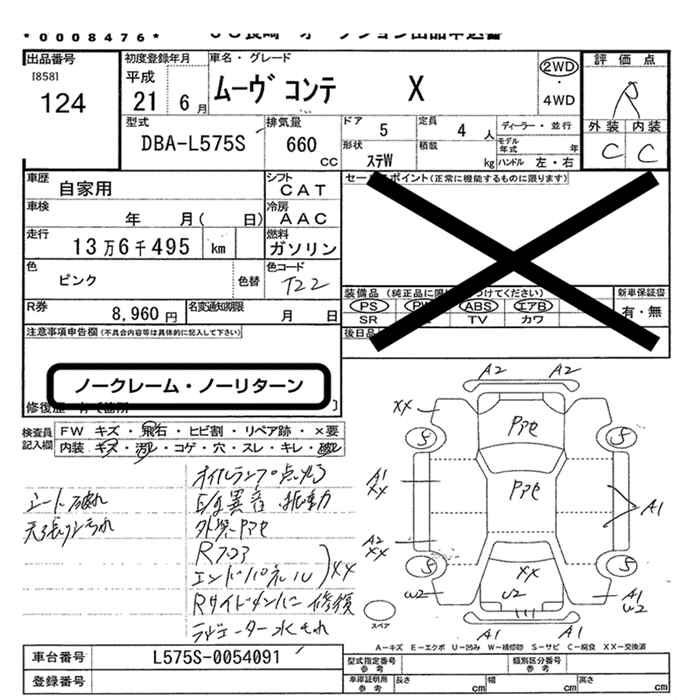 *0008476*
出品番号
[858]
124
初度登録年月
平成
21年 6月
車名・グレード
ムーヴ コンテ X
2WD
・
4WD
評価点
R
外装 内装
C C
型式
DBA-L575S
排気量
660
CC
ドア
5
定員
4 人
形状
ステW
積載
kg
ディーラー・並行
モデル年式 年
ハンドル 左・右
車歴
自家用
シフト
CAT
車検
年 月( 日)
冷房
AAC
走行
13万6千495 km
燃料
ガソリン
色
ピンク
色替
色コード
T22
R券
8,960 円
名変通知期限
月 日
セールスポイント(正常に機能するものに限ります)
装備品
PS ABS エアB
SR TV カワ
新車保証書
有・無
後日品
注意事項申告欄(不具合内容等は具体的に記入して下さい)
ノークレーム・ノーリターン
検査員
記入欄
FW キズ・飛石・ヒビ割・リペア跡・×要
内装 キズ・汚レ・コゲ・穴・スレ・キレ・破レ
オイルランプ点灯る
E/g異音・振動
シート破れ
天張り汚れ
外装Pアセ
Rフロア
エンドパネル XX
Rサイドメンバー修復
ラジエーター水もれ
A2 A2
XX
S S
Pアセ
Pアセ
A1
XX
A1
A2
XX
S S
XX
W2 U2
A1
W2
A1 A1
スペア
A-キズ E-エクボ U-凹み W-補修跡 S-サビ C-腐食 XX-交換済
車台番号
L575S-0054091
登録番号
型式指定番号
参考
類別区分番号
参考
車庫証明用
参考
長さ cm 幅 cm 高さ cm